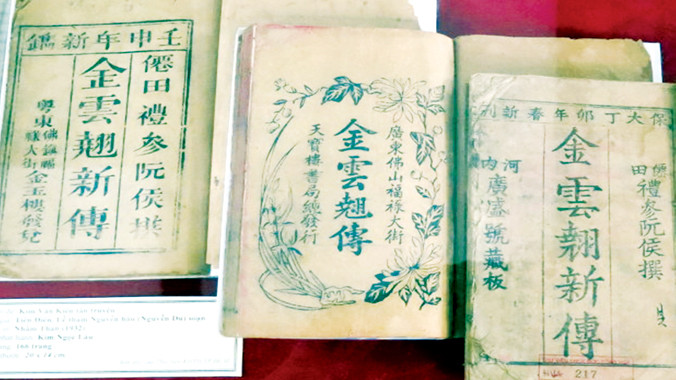 壬申年新鐫
僊田禮參阮侯撰
金雲翹新傳
粵東佛鎮福祿大街金玉樓發兌
廣東佛山福祿大街
金雲翹傳
天寶樓書局總發行
保大丁卯年春新刊
僊田禮參阮侯撰
金雲翹新傳
河內廣盛號藏板
217
Kim Vân Kiều tân truyện
Tiên Điền Lễ tham Nguyễn hầu (Nguyễn Du) soạn
Nhâm Thân (1932)
Kim Ngọc Lâu
trang
20 x 14 cm